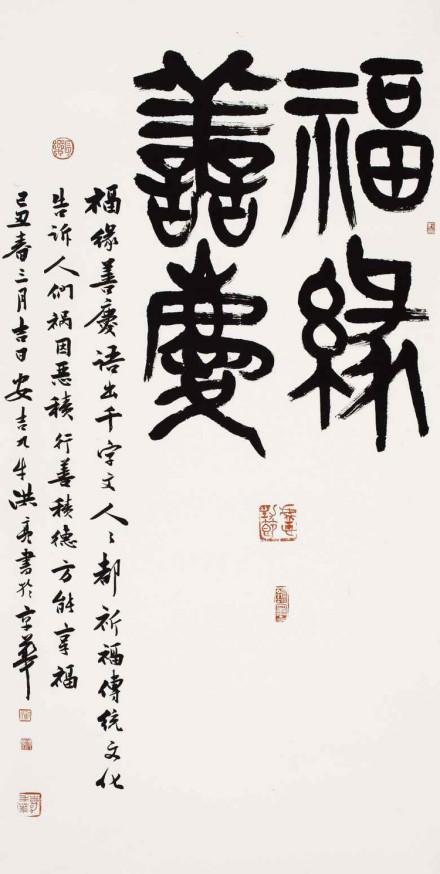 福緣
善慶
福缘善慶语出千字文人々都祈福傳统文化
告诉人们祸因恶積行善積德方能享福
己丑春三月吉日安吉九牛洪亮書於京華